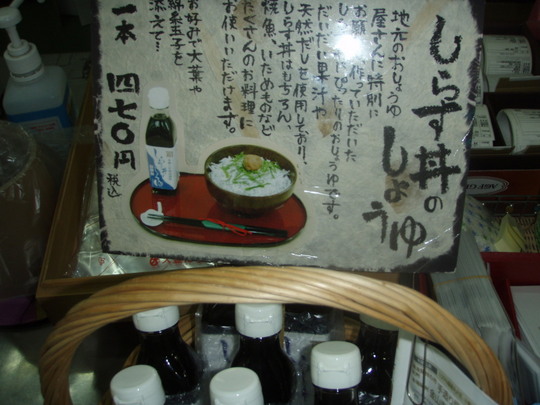 しらす丼の
しょうゆ
地元のおしょうゆ
屋さんに特別に
お願い 作っていただいた
しらす丼にぴったりのおしょうゆです。
だいだい果汁や
天然だしを使用しており、
しらす丼はもちろん、
焼魚、いためものなど
たくさんのお料理に
お使いいただけます。
お好みで大葉や
卵黄を
添えて…
一本 四七〇円 税込